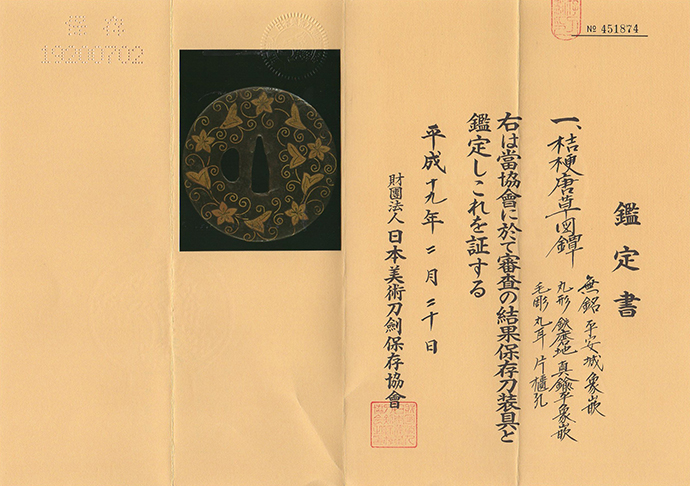 № 451874
鑑定書
一、桔梗唐草図鐔
無銘 平安城象嵌
丸形 鉄磨地 真鍮平象嵌
毛彫 丸耳 片櫃孔
右は當協會に於て審査の結果保存刀装具と
鑑定しこれを証する
平成十九年二月二十日
財團法人 日本美術刀劍保存協會
保存
19200702